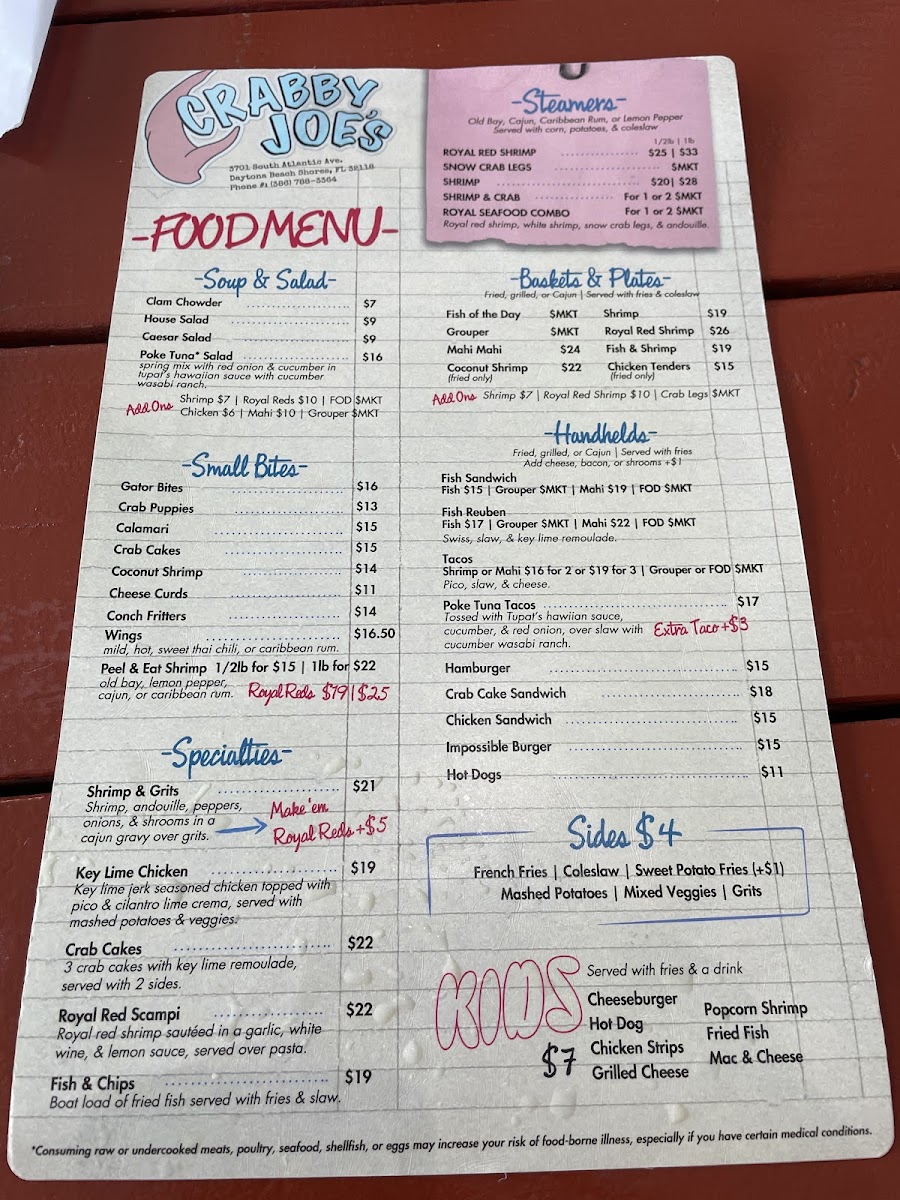 CRABBY
JOE'S
3701 South Atlantic Ave.
Daytona Beach Shores, FL 32118
Phone #1 (386) 788-3364
-FOOD MENU-
-Soup & Salad-
Clam Chowder $7
House Salad $9
Caesar Salad $9
Poke Tuna* Salad $16
spring mix with red onion & cucumber in
tupat's hawaiian sauce with cucumber
wasabi ranch.
Add Ons Shrimp $7 | Royal Reds $10 | FOD $MKT
Chicken $6 | Mahi $10 | Grouper $MKT
-Small Bites-
Gator Bites $16
Crab Puppies $13
Calamari $15
Crab Cakes $15
Coconut Shrimp $14
Cheese Curds $11
Conch Fritters $14
Wings $16.50
mild, hot, sweet thai chili, or caribbean rum.
Peel & Eat Shrimp 1/2lb for $15 | 1lb for $22
old bay, lemon pepper,
cajun, or caribbean rum. Royal Reds $19 | $25
-Specialties-
Shrimp & Grits $21
Shrimp, andouille, peppers,
onions, & shrooms in a
cajun gravy over grits.
Make 'em
Royal Reds +$5
Key Lime Chicken $19
Key lime jerk seasoned chicken topped with
pico & cilantro lime crema, served with
mashed potatoes & veggies.
Crab Cakes $22
3 crab cakes with key lime remoulade,
served with 2 sides.
Royal Red Scampi $22
Royal red shrimp sautéed in a garlic, white
wine, & lemon sauce, served over pasta.
Fish & Chips $19
Boat load of fried fish served with fries & slaw.
-Steamers-
Old Bay, Cajun, Caribbean Rum, or Lemon Pepper
Served with corn, potatoes, & coleslaw
1/2lb | 1lb
ROYAL RED SHRIMP $25 | $33
SNOW CRAB LEGS $MKT
SHRIMP $20 | $28
SHRIMP & CRAB For 1 or 2 $MKT
ROYAL SEAFOOD COMBO For 1 or 2 $MKT
Royal red shrimp, white shrimp, snow crab legs, & andouille.
-Baskets & Plates-
Fried, grilled, or Cajun | Served with fries & coleslaw
Fish of the Day $MKT Shrimp $19
Grouper $MKT Royal Red Shrimp $26
Mahi Mahi $24 Fish & Shrimp $19
Coconut Shrimp $22 Chicken Tenders $15
(fried only) (fried only)
Add Ons Shrimp $7 | Royal Red Shrimp $10 | Crab Legs $MKT
-Handhelds-
Fried, grilled, or Cajun | Served with fries
Add cheese, bacon, or shrooms +$1
Fish Sandwich
Fish $15 | Grouper $MKT | Mahi $19 | FOD $MKT
Fish Reuben
Fish $17 | Grouper $MKT | Mahi $22 | FOD $MKT
Swiss, slaw, & key lime remoulade.
Tacos
Shrimp or Mahi $16 for 2 or $19 for 3 | Grouper or FOD $MKT
Pico, slaw, & cheese.
Poke Tuna Tacos $17
Tossed with Tupat's hawiian sauce,
cucumber, & red onion, over slaw with Extra Taco +$3
cucumber wasabi ranch.
Hamburger $15
Crab Cake Sandwich $18
Chicken Sandwich $15
Impossible Burger $15
Hot Dogs $11
Sides $4
French Fries | Coleslaw | Sweet Potato Fries (+$1)
Mashed Potatoes | Mixed Veggies | Grits
KIDS
$7
Served with fries & a drink
Cheeseburger
Hot Dog
Chicken Strips
Grilled Cheese
Popcorn Shrimp
Fried Fish
Mac & Cheese
*Consuming raw or undercooked meats, poultry, seafood, shellfish, or eggs may increase your risk of food-borne illness, especially if you have certain medical conditions.